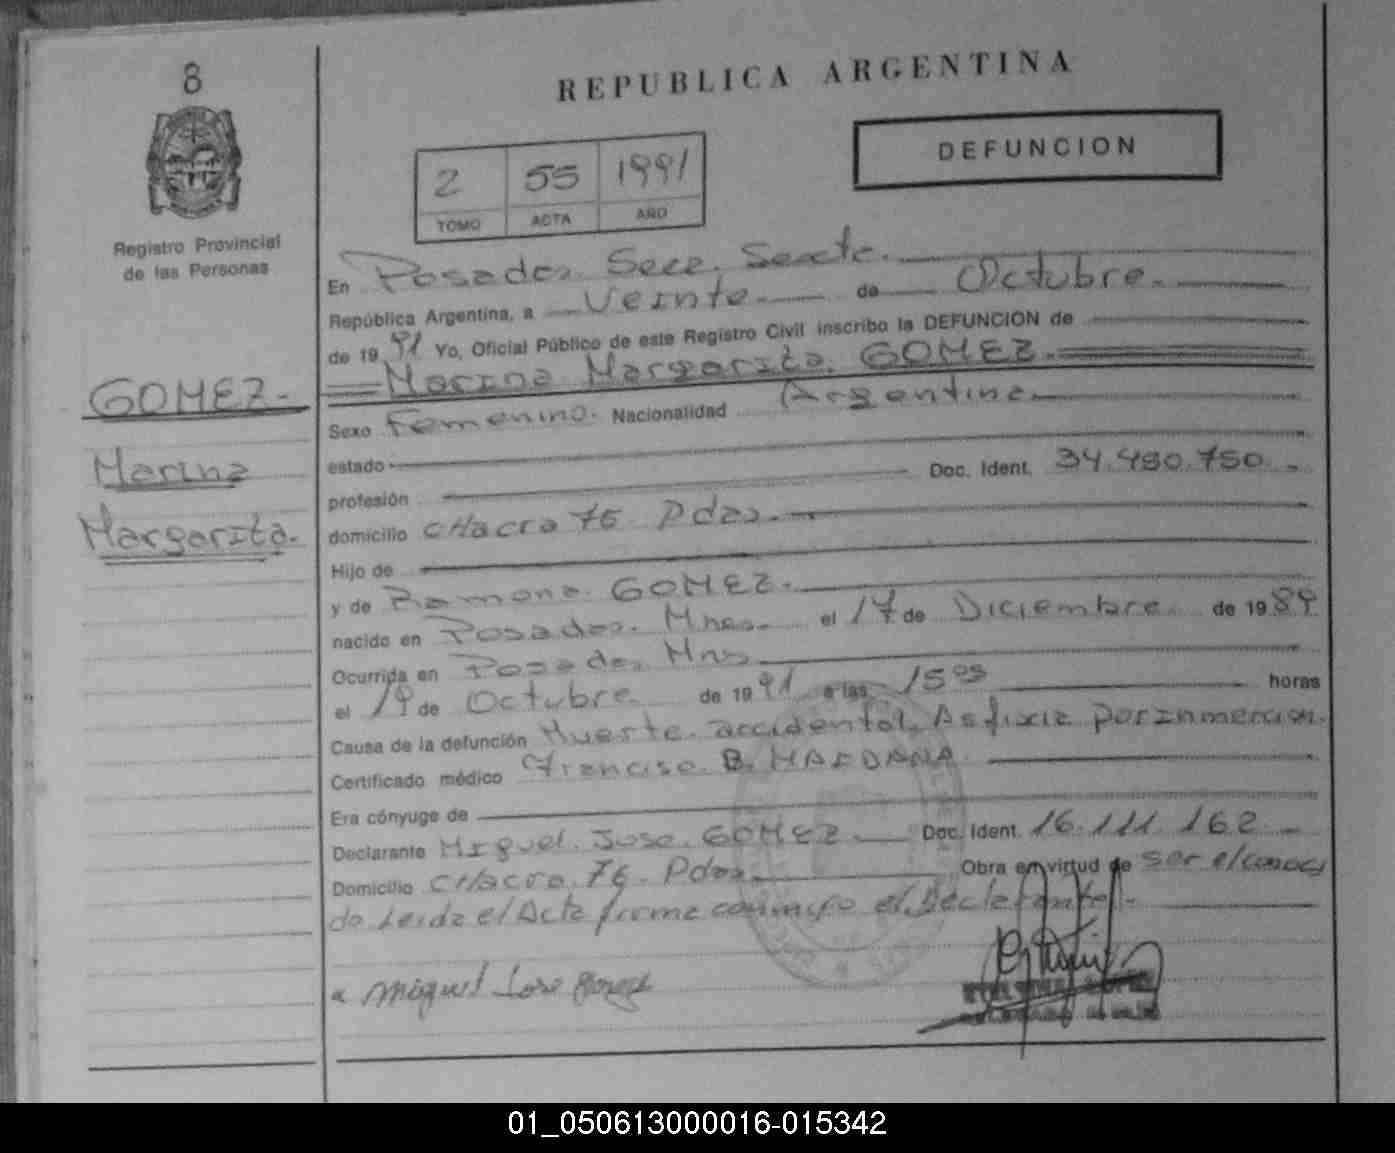 8
REPUBLICA ARGENTINA
DEFUNCION
2 55 1991
TOMO ACTA AÑO
Registro Provincial
de las Personas
En Posadas. Secc. Sexta.
República Argentina, a Veinte de Octubre.
de 1991 Yo, Oficial Público de este Registro Civil inscribo la DEFUNCION de
Marina Margarita. GOMEZ.
GOMEZ.
Marina
Margarita.
Sexo Femenino. Nacionalidad Argentina
estado
profesión Doc. Ident. 34.490.750.
domicilio CHacra 76 Pdas.
Hijo de
y de Ramona. GOMEZ.
nacido en Posadas. Mnes. el 17 de Diciembre de 1989
Ocurrida en Posadas Mns
el 19 de Octubre de 1991 a las 15 05 horas
Causa de la defunción Muerte accidental, Asfixia por inmercion.
Certificado médico Francisc. B. MAIDANA
Era cónyuge de
Declarante Miguel. Jose. GOMEZ Doc. Ident. 16.111.162
Domicilio CHacra. 76. Pdas. Obra em virtud de ser el
do Leida el Acta firma conmigo el Declarante.
Miguel Jose Gomez
01_050613000016-015342